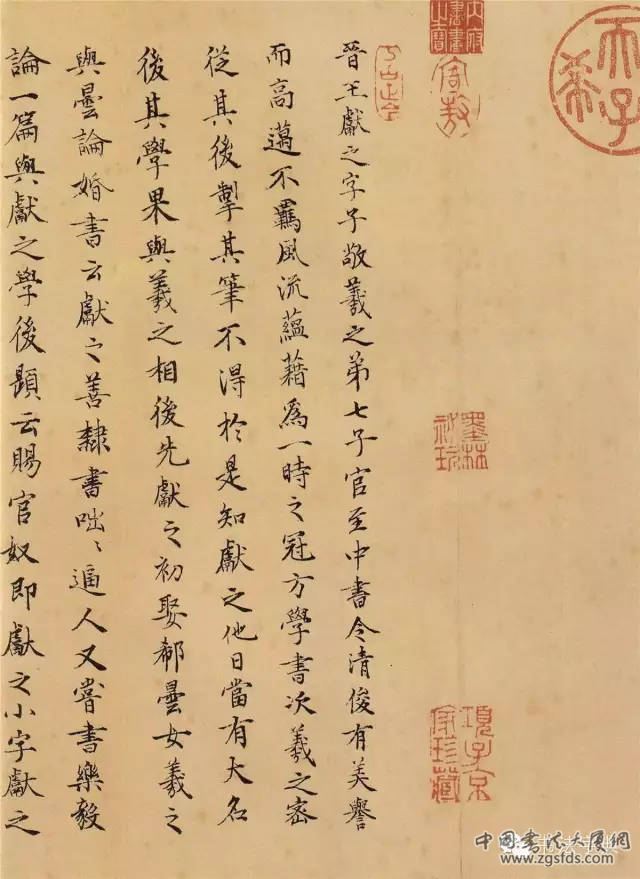 晉王獻之字子敬羲之第七子官至中書令清俊有美譽
而高邁不羈風流蘊藉為一時之冠方學書次羲之密
從其後掣其筆不得於是知獻之他日當有大名
後其學果與羲之相後先獻之初娶郗曇女羲之
與曇論婚書云獻之善隸書咄咄逼人又嘗書樂毅
論一篇與獻之學後題云賜官奴即獻之小字獻之
天子
希
墨林
祕玩
項子京
家珍藏
中国书法大厦網
www.zgsfds.com